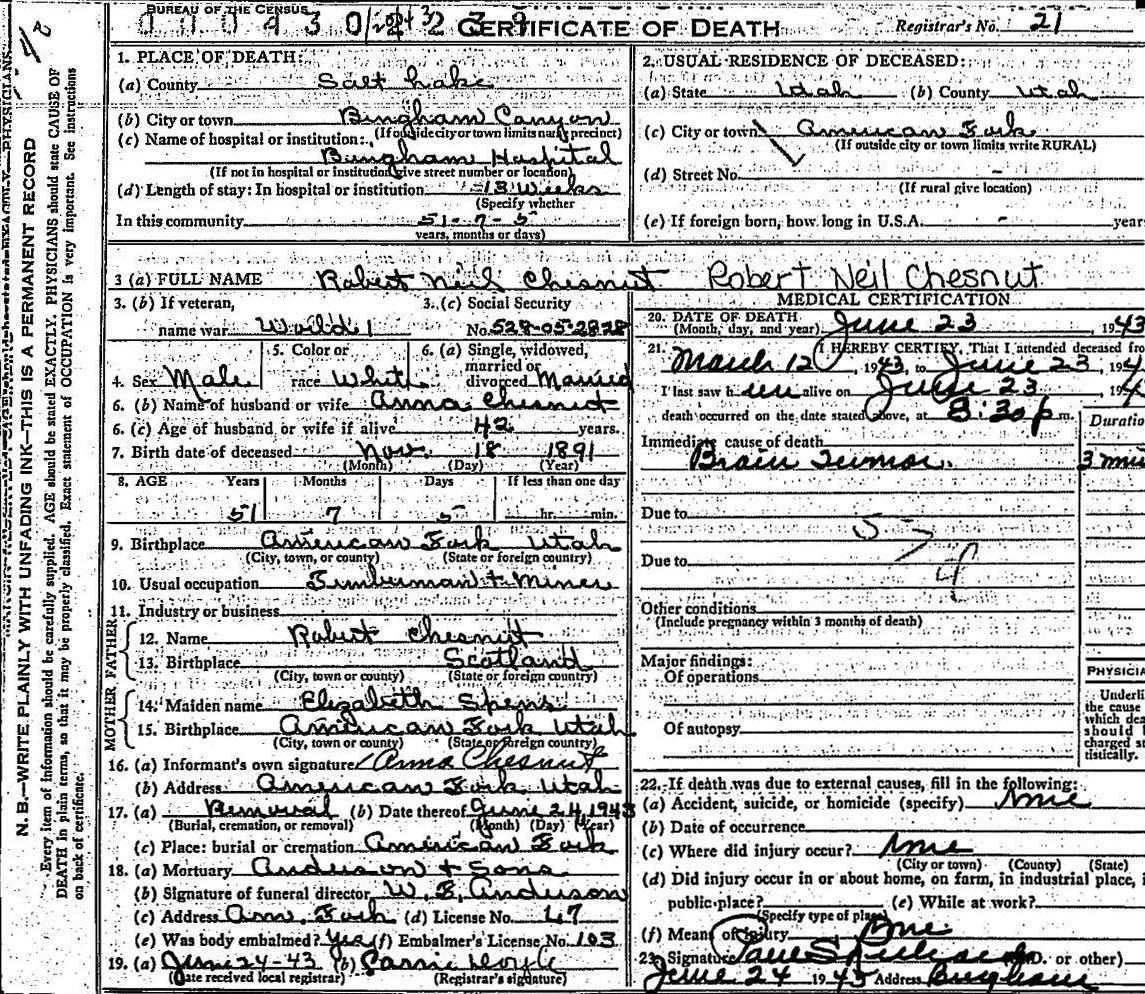 BUREAU OF THE CENSUS
CERTIFICATE OF DEATH
Registrar's No. 21
1. PLACE OF DEATH:
(a) County Salt Lake
(b) City or town Bingham Canyon
(If outside city or town limits name precinct)
(c) Name of hospital or institution:
Bingham Hospital
(If not in hospital or institution give street number or location)
(d) Length of stay: In hospital or institution 13 Weeks
(Specify whether
In this community 51-7-5
years, months or days)
2. USUAL RESIDENCE OF DECEASED:
(a) State Utah (b) County Utah
(c) City or town American Fork
(If outside city or town limits write RURAL)
(d) Street No. -
(If rural give location)
(e) If foreign born, how long in U.S.A. - year
3 (a) FULL NAME Robert Neil Chesnut Robert Neil Chesnut
3. (b) If veteran,
name war World 1
3. (c) Social Security
No. 528-05-2828
4. Sex Male
5. Color or
race White
6. (a) Single, widowed,
married or
divorced Married
6. (b) Name of husband or wife Anna Chesnut
6. (c) Age of husband or wife if alive 42 years.
7. Birth date of deceased Nov. 18 1891
(Month) (Day) (Year)
8. AGE Years Months Days If less than one day
51 7 5 hr. min.
9. Birthplace American Fork Utah
(City, town, or county) (State or foreign country)
10. Usual occupation Timberman & Miner
11. Industry or business
FATHER
12. Name Robert Chesnut
13. Birthplace Scotland
(City, town or county) (State or foreign country)
MOTHER
14. Maiden name Elizabeth Spens
15. Birthplace American Fork Utah
(City, town or county) (State or foreign country)
16. (a) Informant's own signature Anna Chesnut
(b) Address American Fork Utah
17. (a) Removal (b) Date thereof June 24, 1943
(Burial, cremation, or removal) (Month) (Day) (Year)
(c) Place: burial or cremation American Fork
18. (a) Mortuary Anderson & Sons
(b) Signature of funeral director W. E. Anderson
(c) Address Am. Fork (d) License No. 47
(e) Was body embalmed? Yes (f) Embalmer's License No. 103
19. (a) June 24-43 (b) Carrie Doyle
(Date received local registrar) (Registrar's signature)
MEDICAL CERTIFICATION
20. DATE OF DEATH
(Month, day, and year) June 23, 1943
21. I HEREBY CERTIFY, That I attended deceased fro
March 12, 1943, to June 23, 194
I last saw him alive on June 23, 194
death occurred on the date stated above, at 8:30 p m.
Duratio
Immediate cause of death
Brain Tumor. 3 
Due to
57
Due to
Other conditions
(Include pregnancy within 3 months of death)
Major findings:
Of operations
Of autopsy
PHYSICIA
Underli
the cause
which dea
should b
charged st
tistically.
22. If death was due to external causes, fill in the following:
(a) Accident, suicide, or homicide (specify) None
(b) Date of occurrence
(c) Where did injury occur? None
(City or town) (County) (State)
(d) Did injury occur in or about home, on farm, in industrial place, i
public place? (e) While at work?
(Specify type of place)
(f) Means of injury None
23. Signature Paul S. (M.D. or other)
June 24 1943 Address Bingham
N. B.—WRITE PLAINLY WITH UNFADING INK—THIS IS A PERMANENT RECORD
Every item of information should be carefully supplied. AGE should be stated EXACTLY. PHYSICIANS should state CAUSE OF
DEATH in plain terms, so that it may be properly classified. Exact statement of OCCUPATION is very important. See instructions
on back of certificate.